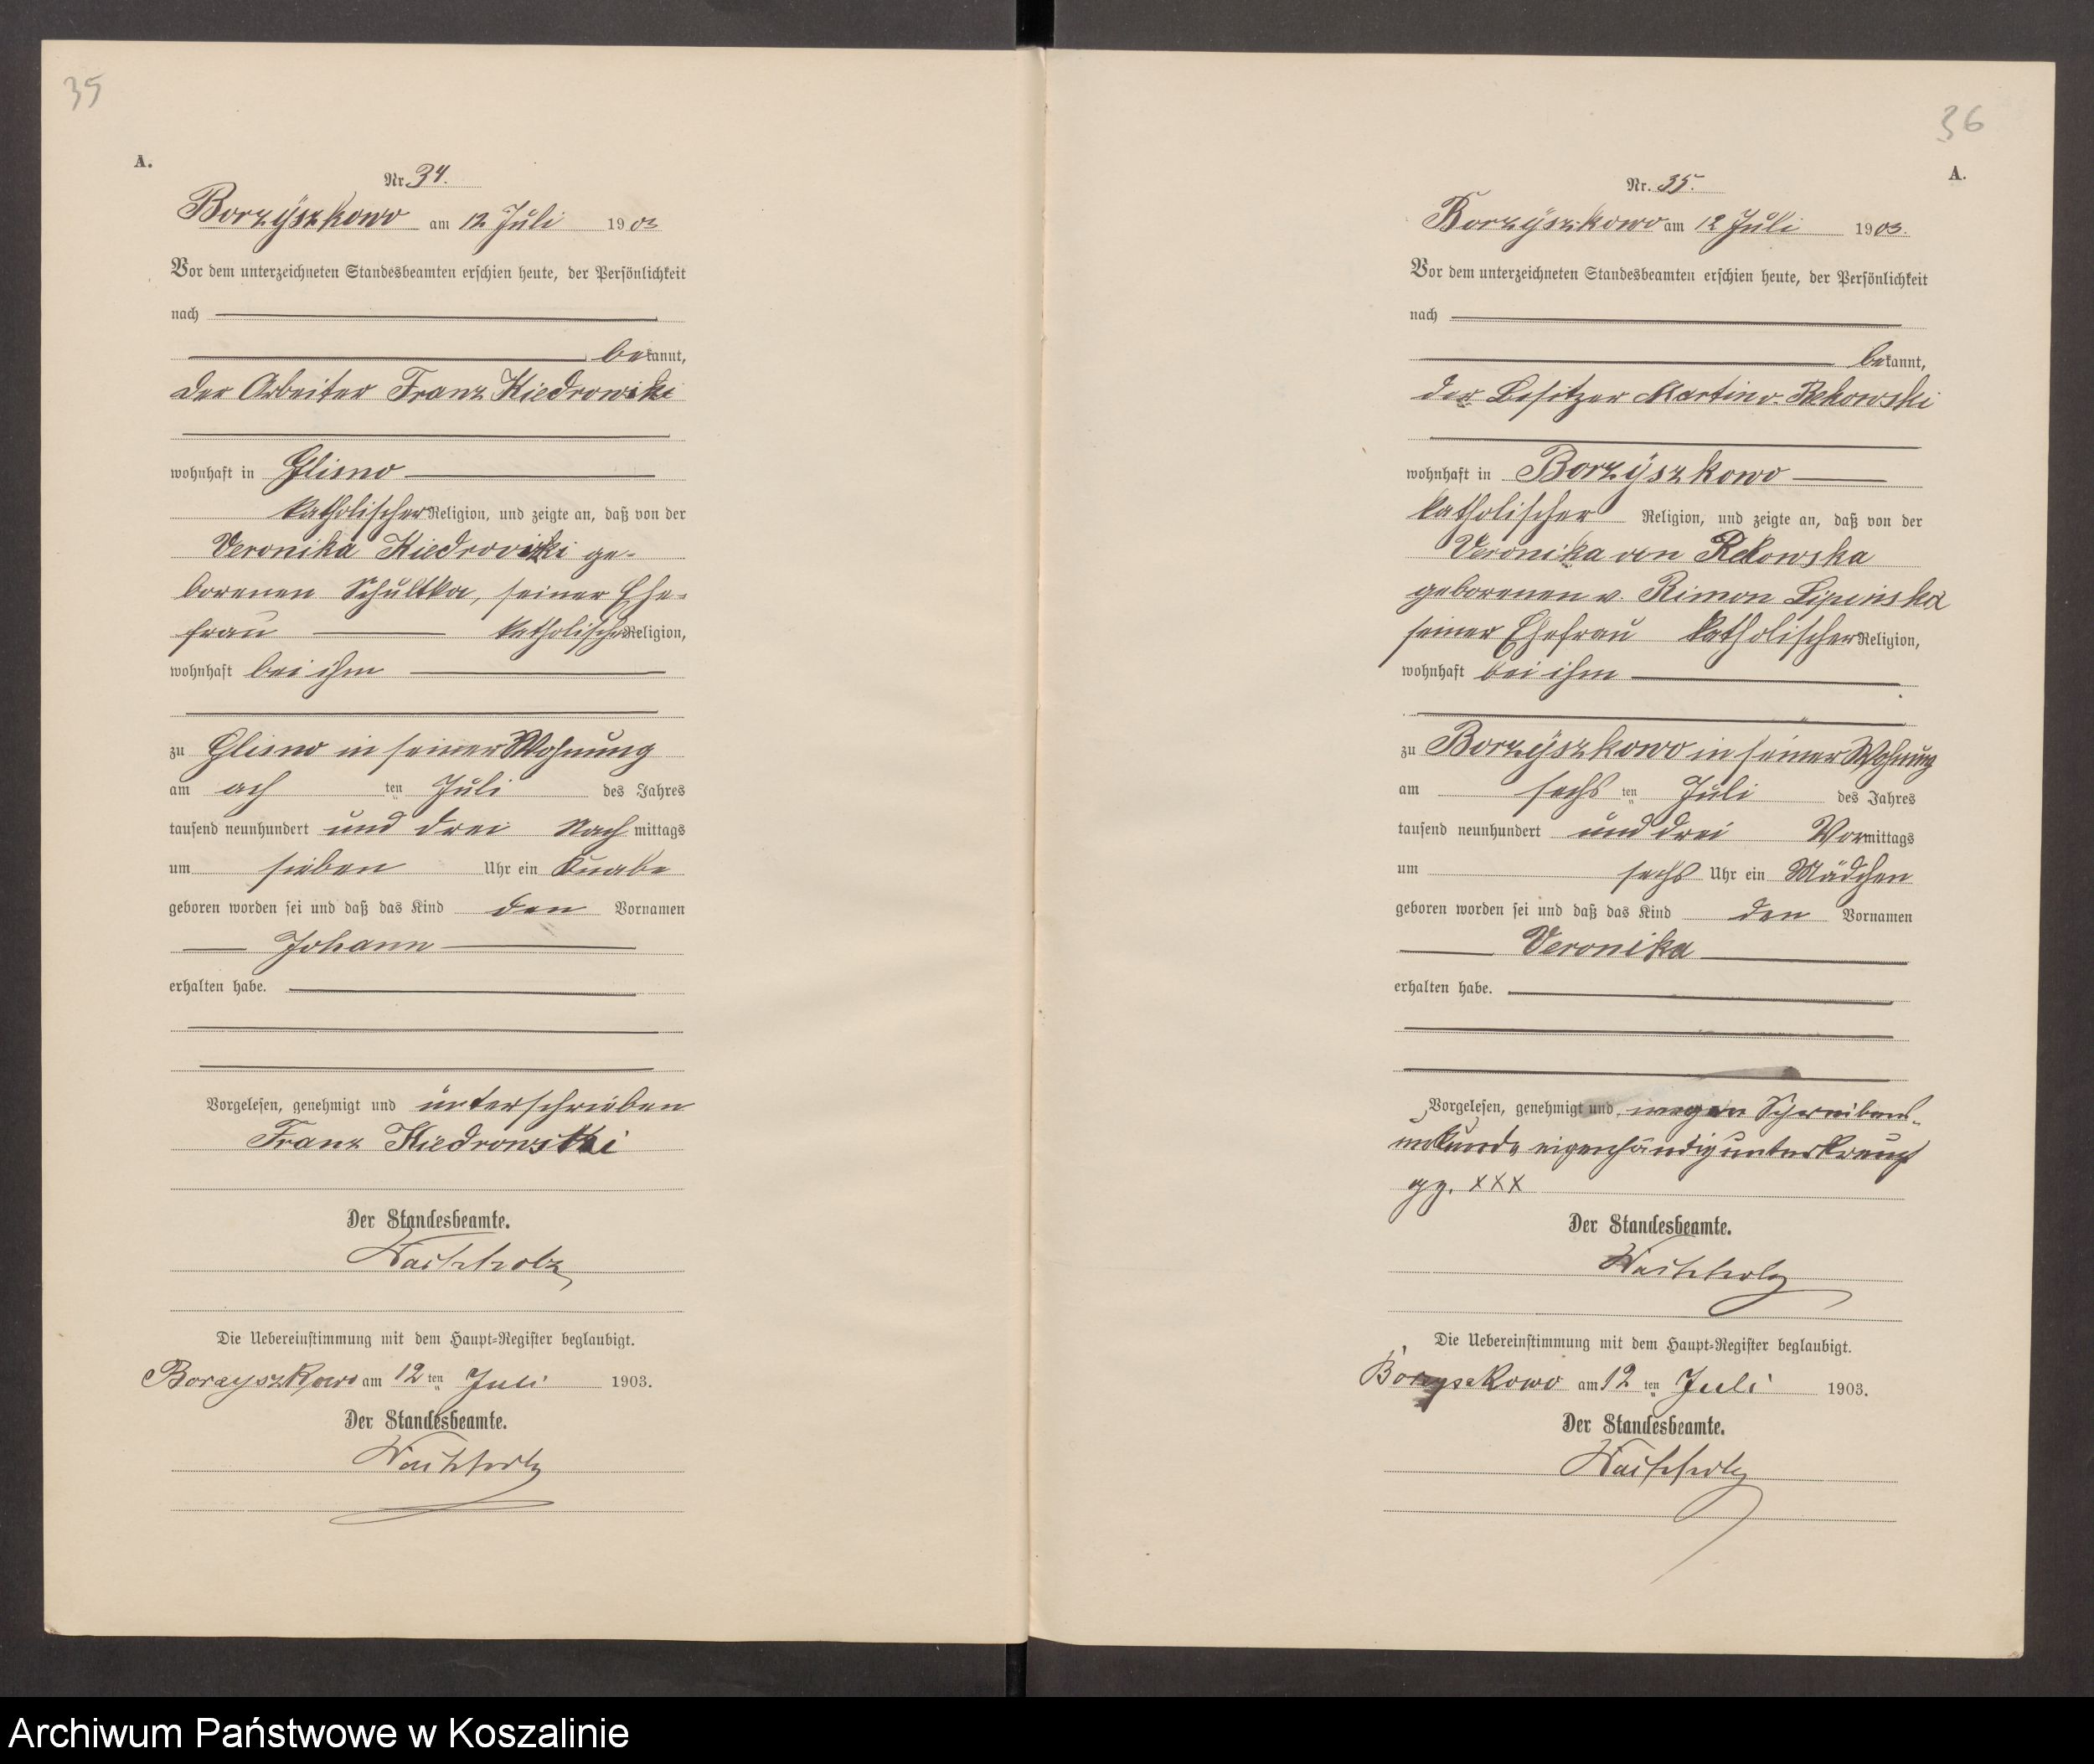 35
A.
Nr. 34.
Borzÿszkowo am 12 Juli 1903
Vor dem unterzeichneten Standesbeamten erschien heute, der Persönlichkeit
nach
bekannt,
der Arbeiter Franz Kiedrowski
wohnhaft in Glisno
katholischer Religion, und zeigte an, daß von der
Veronika Kiedrowski ge-
borenen Schultka, seiner Ehe-
frau katholischer Religion,
wohnhaft bei ihm
zu Glisno in seiner Wohnung
am ach ten Juli des Jahres
tausend neunhundert und drei Nach mittags
um sieben Uhr ein Knabe
geboren worden sei und daß das Kind den Vornamen
Johann
erhalten habe.
Vorgelesen, genehmigt und unterschrieben
Franz Kiedrowski
Der Standesbeamte.
Wachholz
Die Uebereinstimmung mit dem Haupt-Register beglaubigt.
Borzyszkowo am 12 ten Juli 1903.
Der Standesbeamte.
Wachholz
36
A.
Nr. 35.
Borzÿszkowo am 12 Juli 1903.
Vor dem unterzeichneten Standesbeamten erschien heute, der Persönlichkeit
nach
bekannt,
der Besitzer Martin v. Rekowski
wohnhaft in Borzÿszkowo
katholischer Religion, und zeigte an, daß von der
Veronika von Rekowska
geborenen v. Rimon Lipinska
seiner Ehefrau katholischer Religion,
wohnhaft bei ihm
zu Borzÿszkowo in seiner Wohnung
am sechs ten Juli des Jahres
tausend neunhundert und drei Vormittags
um sechs Uhr ein Mädchen
geboren worden sei und daß das Kind den Vornamen
Veronika
erhalten habe.
Vorgelesen, genehmigt und wegen Schreibens-
unkunde eigenhändig unterkreuzt
gz. XXX
Der Standesbeamte.
Wachholz
Die Uebereinstimmung mit dem Haupt-Register beglaubigt.
Borzyszkowo am 12 ten Juli 1903.
Der Standesbeamte.
Wachholz
Archiwum Państwowe w Koszalinie